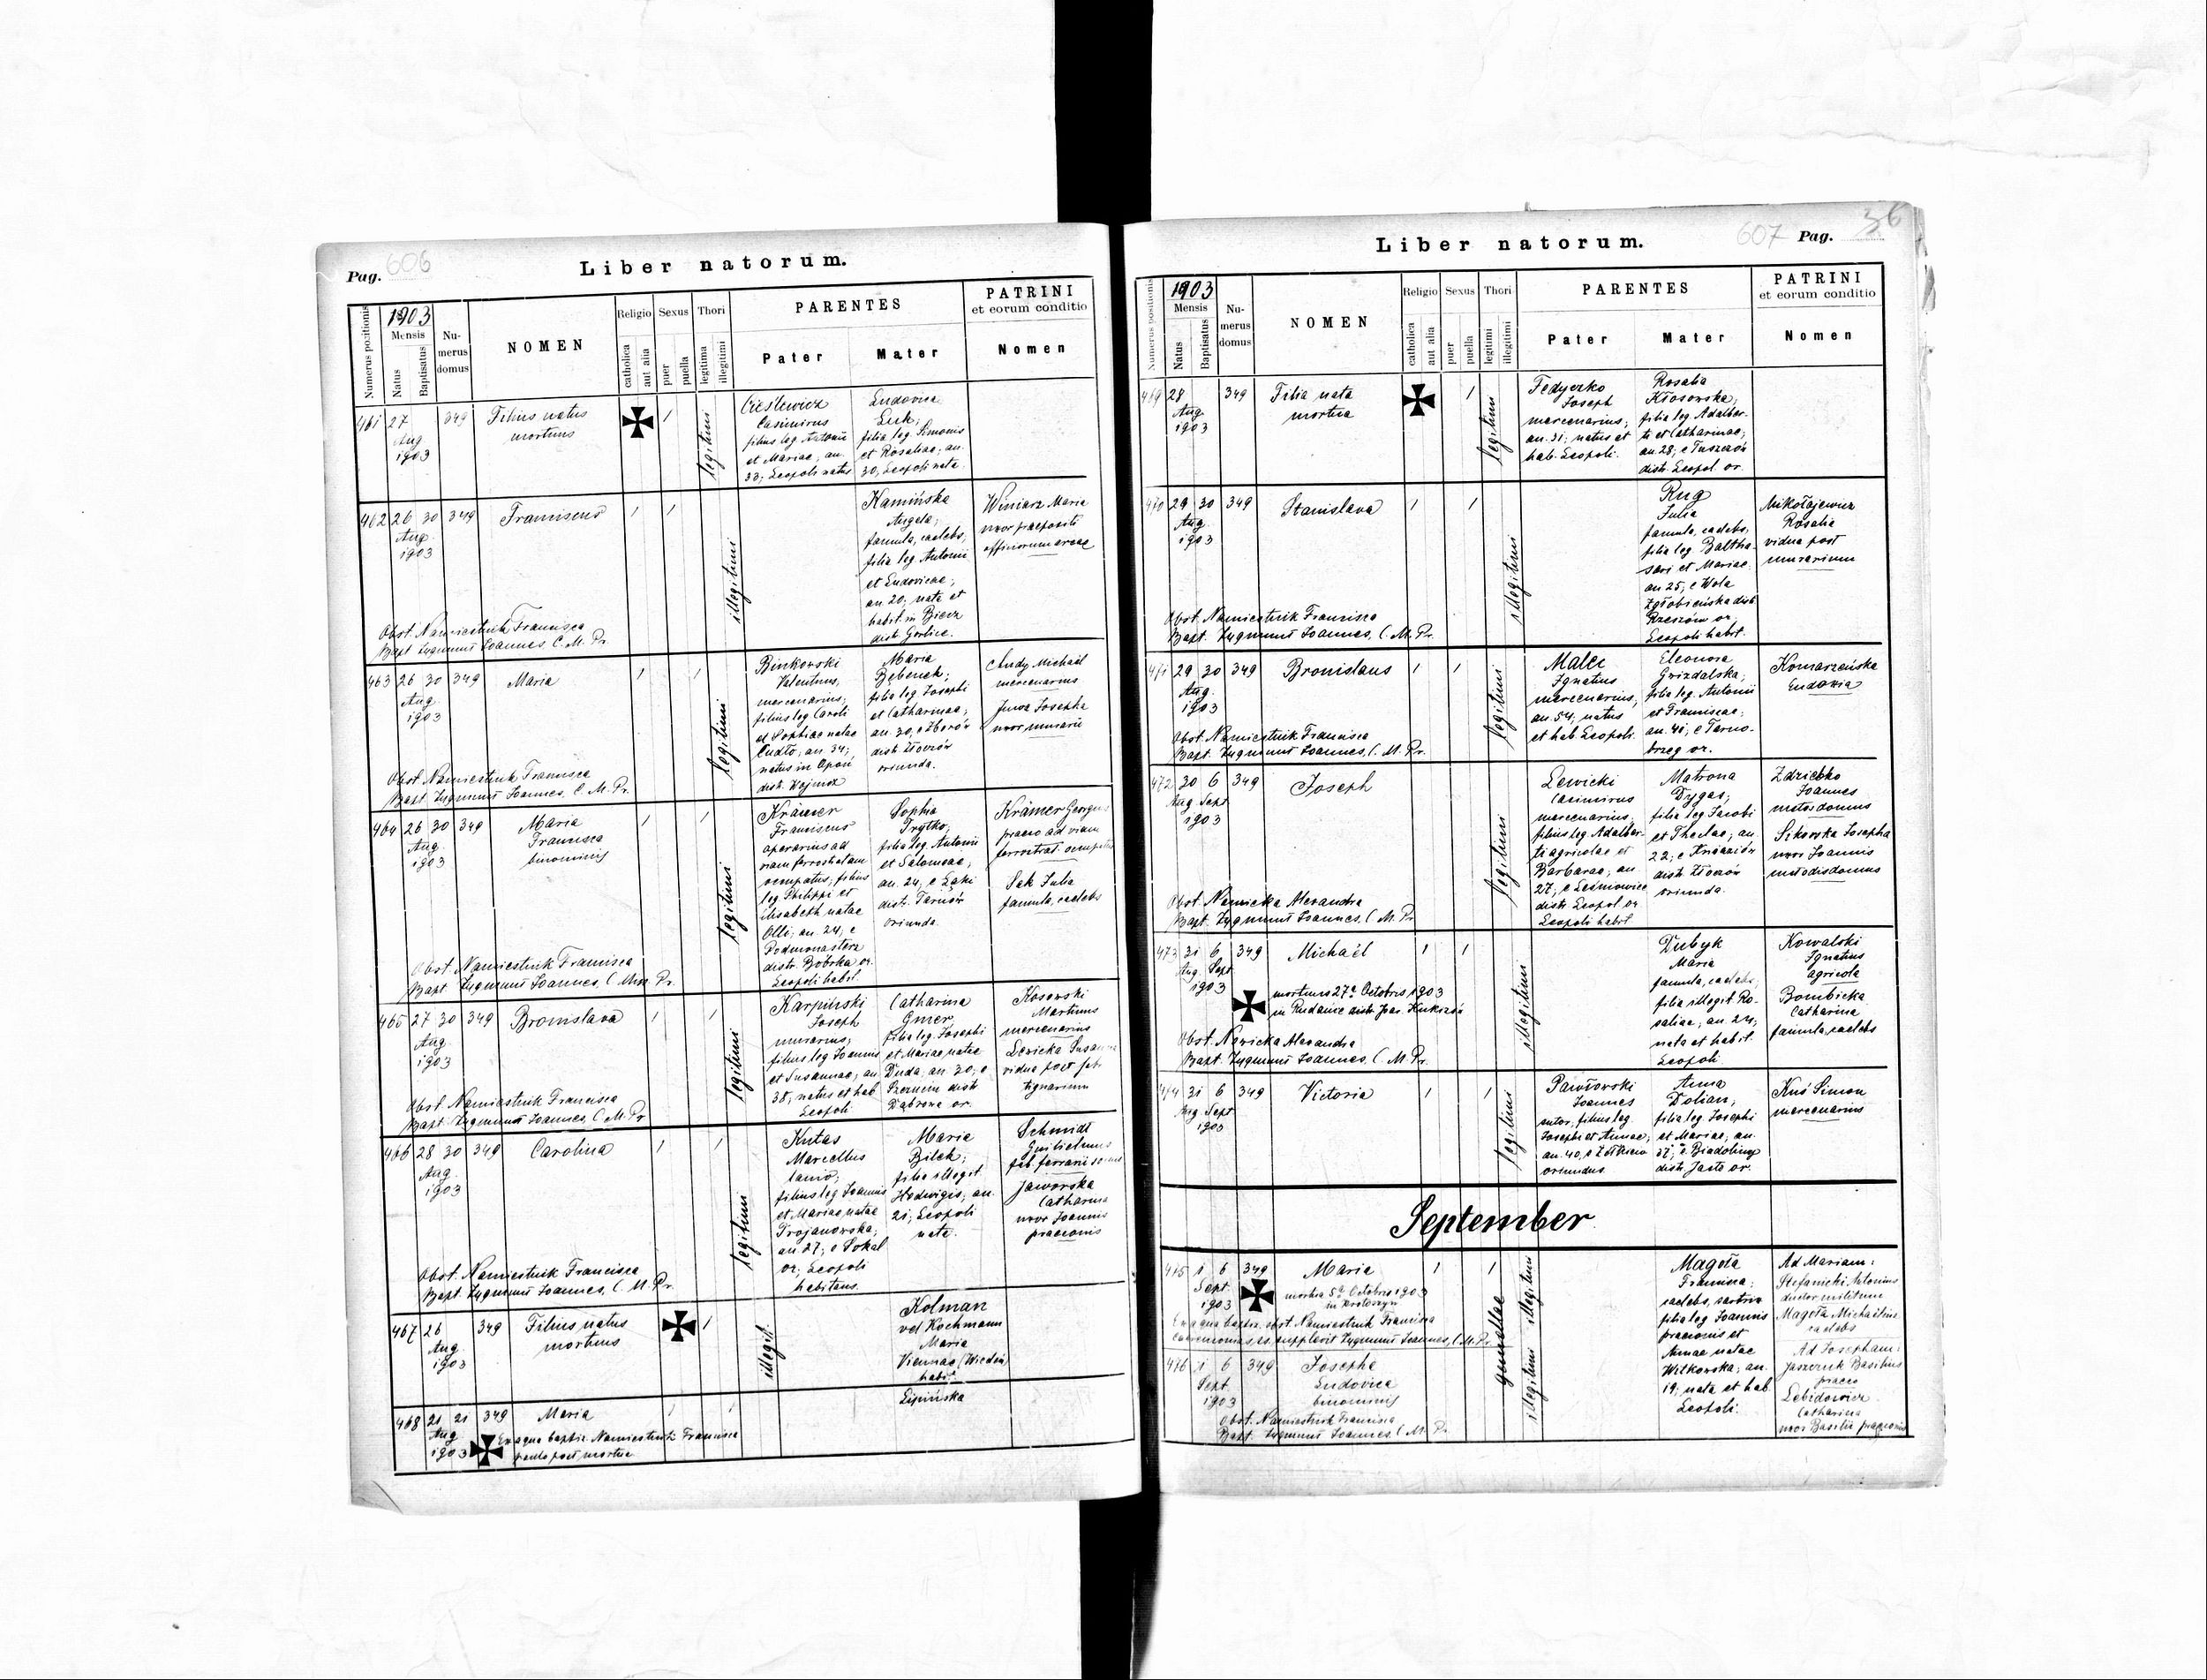 Pag. 606
Liber natorum.
Numerus positionis
1903
Mensis
Natus
Baptisatus
Numerus domus
NOMEN
Religio
catholica
aut alia
Sexus
puer
puella
Thori
legitima
illegitimi
PARENTES
Pater
Mater
PATRINI
et eorum conditio
Nomen
461 27 349 Filius natus
Aug mortuus
1903
legitimi
Casimirus
filius leg Antonii
et Mariae, an.
33; Leopoli natus
Ludovica
Luk;
filia leg. Simonis
et Rosaliae; an.
30, Leopoli nata.
462 26 30 349 Franciscus
Aug.
1903
illegitimi
Kamińska
Angela;
famula, caelebs,
filia leg. Antonii
et Ludovicae;
an. 20; nata et
habit. in Biecz
distr. Gorlice.
Winiarz Maria
uxor praepositi
Obst. Namiestnik Francisca
Bapt. Zygmunt Joannes, C. M. Pr.
463 26 30 349 Maria
Aug.
1903
legitimi
Binkowski
Valentinus,
mercenarius;
filius leg Caroli
et Sophiae natae
an. 34;
natus in
distr.
Maria
Bębenek;
filia leg Josephi
et Catharinae;
an. 30, e Zborów
distr. Złoczów
oriunda.
Michael
mercenarius
Josepha
uxor murarii
Obst. Namiestnik Francisca
Bapt. Zygmunt Joannes, C. M. Pr.
464 26 30 349 Maria
Aug. Francisca
1903 binominis
legitimi
Krämer
Franciscus
operarius ad
viam ferrostratam
occupatus; filius
leg Philippi et
Elisabeth natae
Olli; an. 24; e
Podmonasterz
distr. Bóbrka or.
Leopoli habit.
Sophia
Trytko;
filia leg. Antonii
et Salomeae;
an. 24, e Łąki
distr. Tarnów
oriunda.
Krämer Georgius
praeco ad viam
ferrostrat. occupatus
Sak Julia
famula, caelebs
Obst. Namiestnik Francisca
Bapt Zygmunt Joannes, C. Miss. Pr.
465 27 30 349 Bronislava
Aug.
1903
legitimi
Karpiński
Joseph
murarius;
filius leg Joannis
et Susannae; an.
38, natus et hab
Leopoli
Catharina
Gmer,
filia leg. Josephi
et Mariae natae
Duda, an. 30; e
distr
Dąbrowa or.
Kosowski
Martinus
mercenarius
Levicka Susanna
vidua post fab.
tignarium
Obst. Namiestnik Francisca
Bapt. Zygmunt Joannes, C. M. Pr
466 28 30 349 Carolina
Aug.
1903
legitimi
Kutas
Marcellus
lanio;
filius leg Joannis
et Mariae natae
Trojanowska;
an. 27; e Sokal
or; Leopoli
habitans.
Maria
Bilek;
filia illegit
Hedwigis; an.
21; Leopoli
nata.
Schmidt
Guilielmus
fab. ferrarii
Jaworska
Catharina
uxor Joannis
praeconis
Obst. Namiestnik Francisca
Bapt. Zygmunt Joannes, C. M. Pr.
467 26 349 Filius natus
Aug. mortuus
1903
illegit.
Kolman
vel Kochmann
Maria
Viennae (Wiedeń)
habit.
468 21 21 349 Maria
Aug
1903
Ex aqua baptis. Namiestnik Francisca
paulo post mortua
Lipińska
Liber natorum.
607 Pag. 36
Numerus positionis
1903
Mensis
Natus
Baptisatus
Numerus domus
NOMEN
Religio
catholica
aut alia
Sexus
puer
puella
Thori
legitimi
illegitimi
PARENTES
Pater
Mater
PATRINI
et eorum conditio
Nomen
469 28 349 Filia nata
Aug mortua
1903
legitimi
Fedyczko
Joseph
mercenarius;
an. 31; natus et
hab. Leopoli.
Rosalia
Kłosowska;
filia leg Adalber-
ti et Catharinae;
an. 28; e Tuszczów
distr. Leopol or.
470 29 30 349 Stanislava
Aug.
1903
illegitimi
Rug
Julia
famula, caelebs,
filia leg Baltha-
sari et Mariae
an 25; e Wola
Zgłobieńska distr
Rzeszów or,
Leopoli habit.
Mikołajewicz
Rosalia
vidua post
murarium
Obst. Namiestnik Francisca
Bapt. Zygmunt Joannes, C. M. Pr.
471 29 30 349 Bronislaus
Aug.
1903
legitimi
Malec
Ignatius
mercenarius,
an. 54; natus
et hab. Leopoli
Eleonora
Gwizdalska;
filia leg. Antonii
et Franciscae;
an. 41; e Tarno-
brzeg or.
Komarzeńska
Eudoxia
Obst. Namiestnik Francisca
Bapt. Zygmunt Joannes, C. M. Pr.
472 30 6 349 Joseph
Aug Sept
1903
legitimi
Lewicki
Casimirus
mercenarius;
filius leg. Adalber-
ti agricolae et
Barbarae, an.
27; e Leśniowice
distr. Leopol or
Leopoli habit
Matrona
Dygas;
filia leg Jacobi
et Theclae; an.
22; e Kniaziów
distr Złoczów
oriunda.
Zdziebko
Joannes
custos domus
Sikorska Josepha
uxor Joannis
custodis domus
Obst. Nawicka Alexandra
Bapt. Zygmunt Joannes, C. M. Pr
473 31 6 349 Michaël
Aug. Sept
1903
mortuus 27a Octobris 1903
in Rudańce distr Jar. Kukizów
illegitimi
Dubyk
Maria
famula, caelebs,
filia illegit Ro-
saliae; an. 24;
nata et habit.
Leopoli
Kowalski
Ignatius
agricola
Bombicka
Catharina
famula, caelebs
Obst. Nawicka Alexandra
Bapt. Zygmunt Joannes, C. M. Pr.
474 31 6 349 Victoria
Aug. Sept
1903
legitimi
Pawłowski
Joannes
sutor, filius leg
Josephi et Annae;
an. 40, e Żółkiew
oriundus
Anna
Dolian,
filia leg Josephi
et Mariae; an.
37; e Biadoliny
distr. Jasło or.
Kuś Simon
mercenarius
September
475 1 6 349 Maria
Sept.
1903
mortua 5a Octobris 1903
in Krotoszyn
Ex aqua baptis. obst. Namiestnik Francisca
caeremonias, ss. supplevit Zygmunt Joannes, C. M. Pr.
gemellae
illegitimi
Magota
Francisca;
caelebs, sartrix
filia leg Joannis
praeconis et
Annae natae
Witkowska; an.
19; nata et hab.
Leopoli.
Ad Mariam:
Stefanicki Antonius
ductor militum
Magota Michaëlina
caelebs
476 1 6 349 Josepha
Sept. Ludovica
1903 binominis
illegitimi
Ad Josepham:
Jaszczuk Basilius
praeco
Lebidowicz
Catharina
uxor Basilii praeconis
Obst. Namiestnik Francisca
Bapt. Zygmunt Joannes, C. M. Pr.